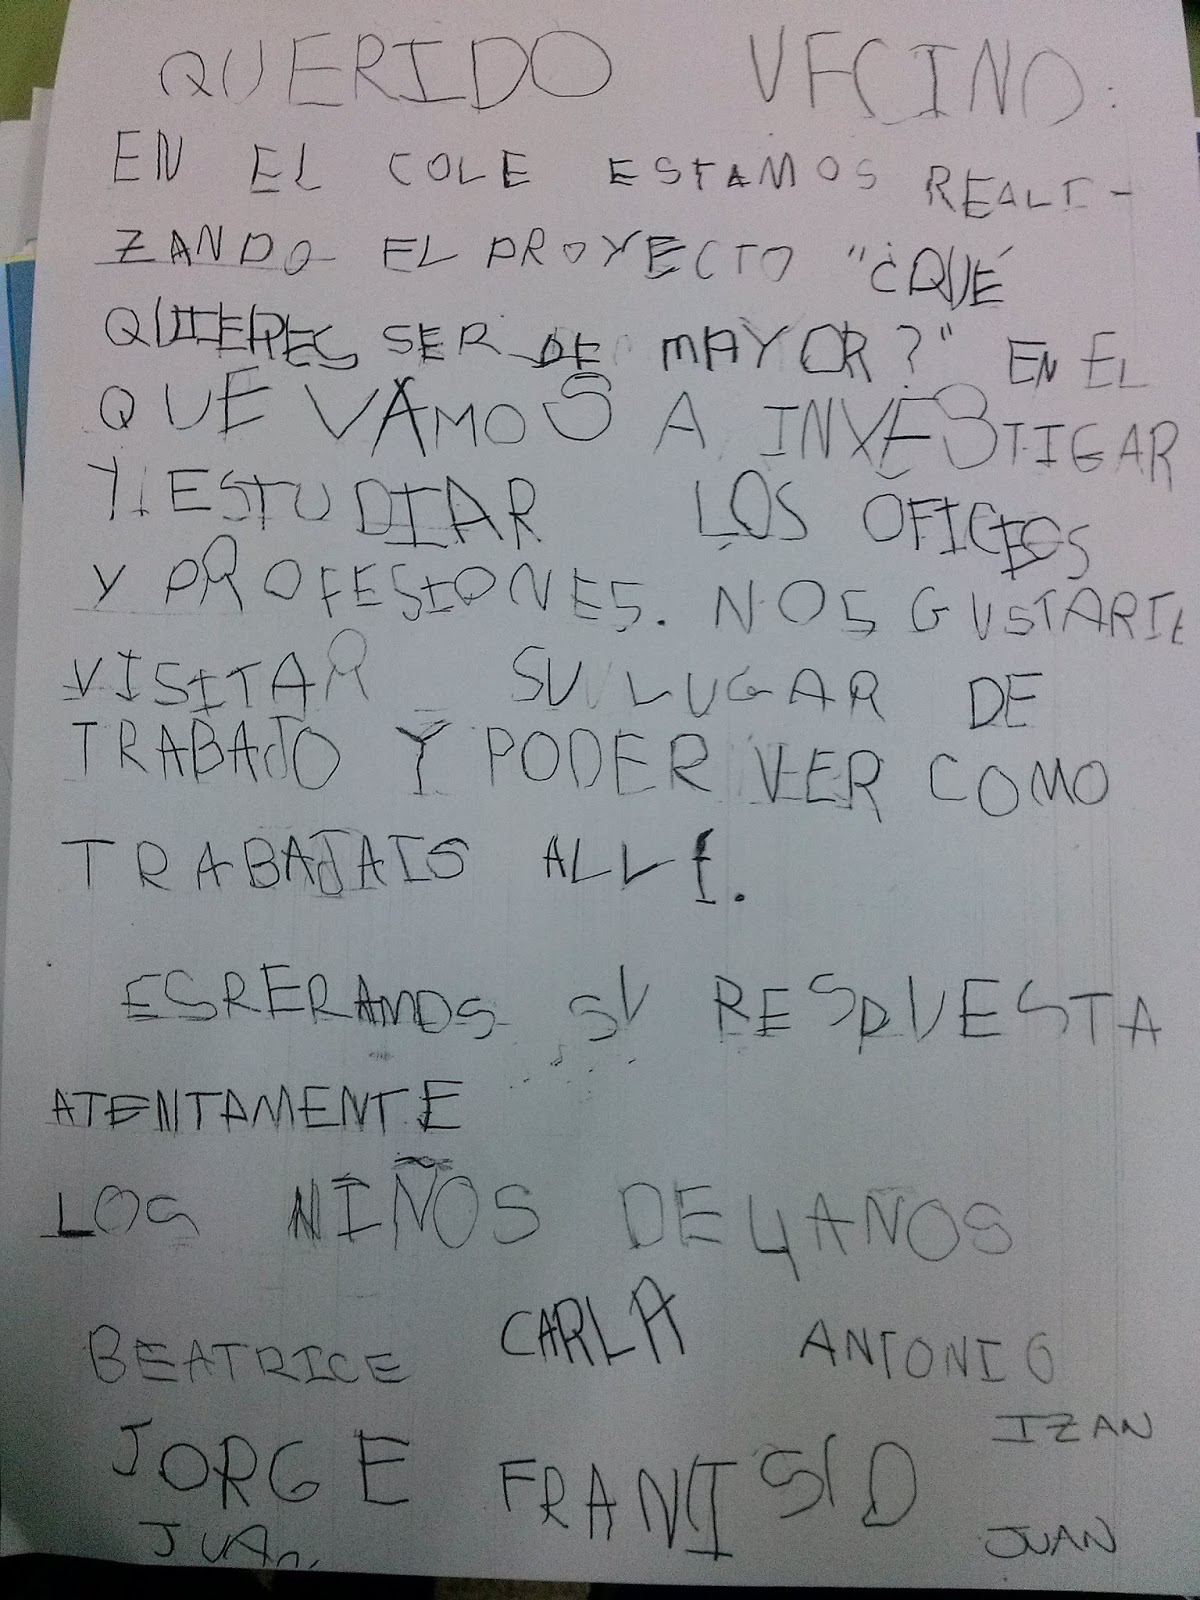 QUERIDO VECINO:
EN EL COLE ESTAMOS REALI-
ZANDO EL PROYECTO "¿QUÉ
QUIERES SER DE MAYOR?" EN EL
QUE VAMOS A INVESTIGAR
Y ESTUDIAR LOS OFICIOS
Y PROFESIONES. NOS GUSTARIA
VISITAR SU LUGAR DE
TRABAJO Y PODER VER COMO
TRABAJAIS ALLI.
ESRERAMOS SU RESPUESTA
ATENTAMENTE
LOS NIÑOS DE 4 AÑOS
BEATRICE CARLA ANTONIO
IZAN
JORGE
JUAN JUAN